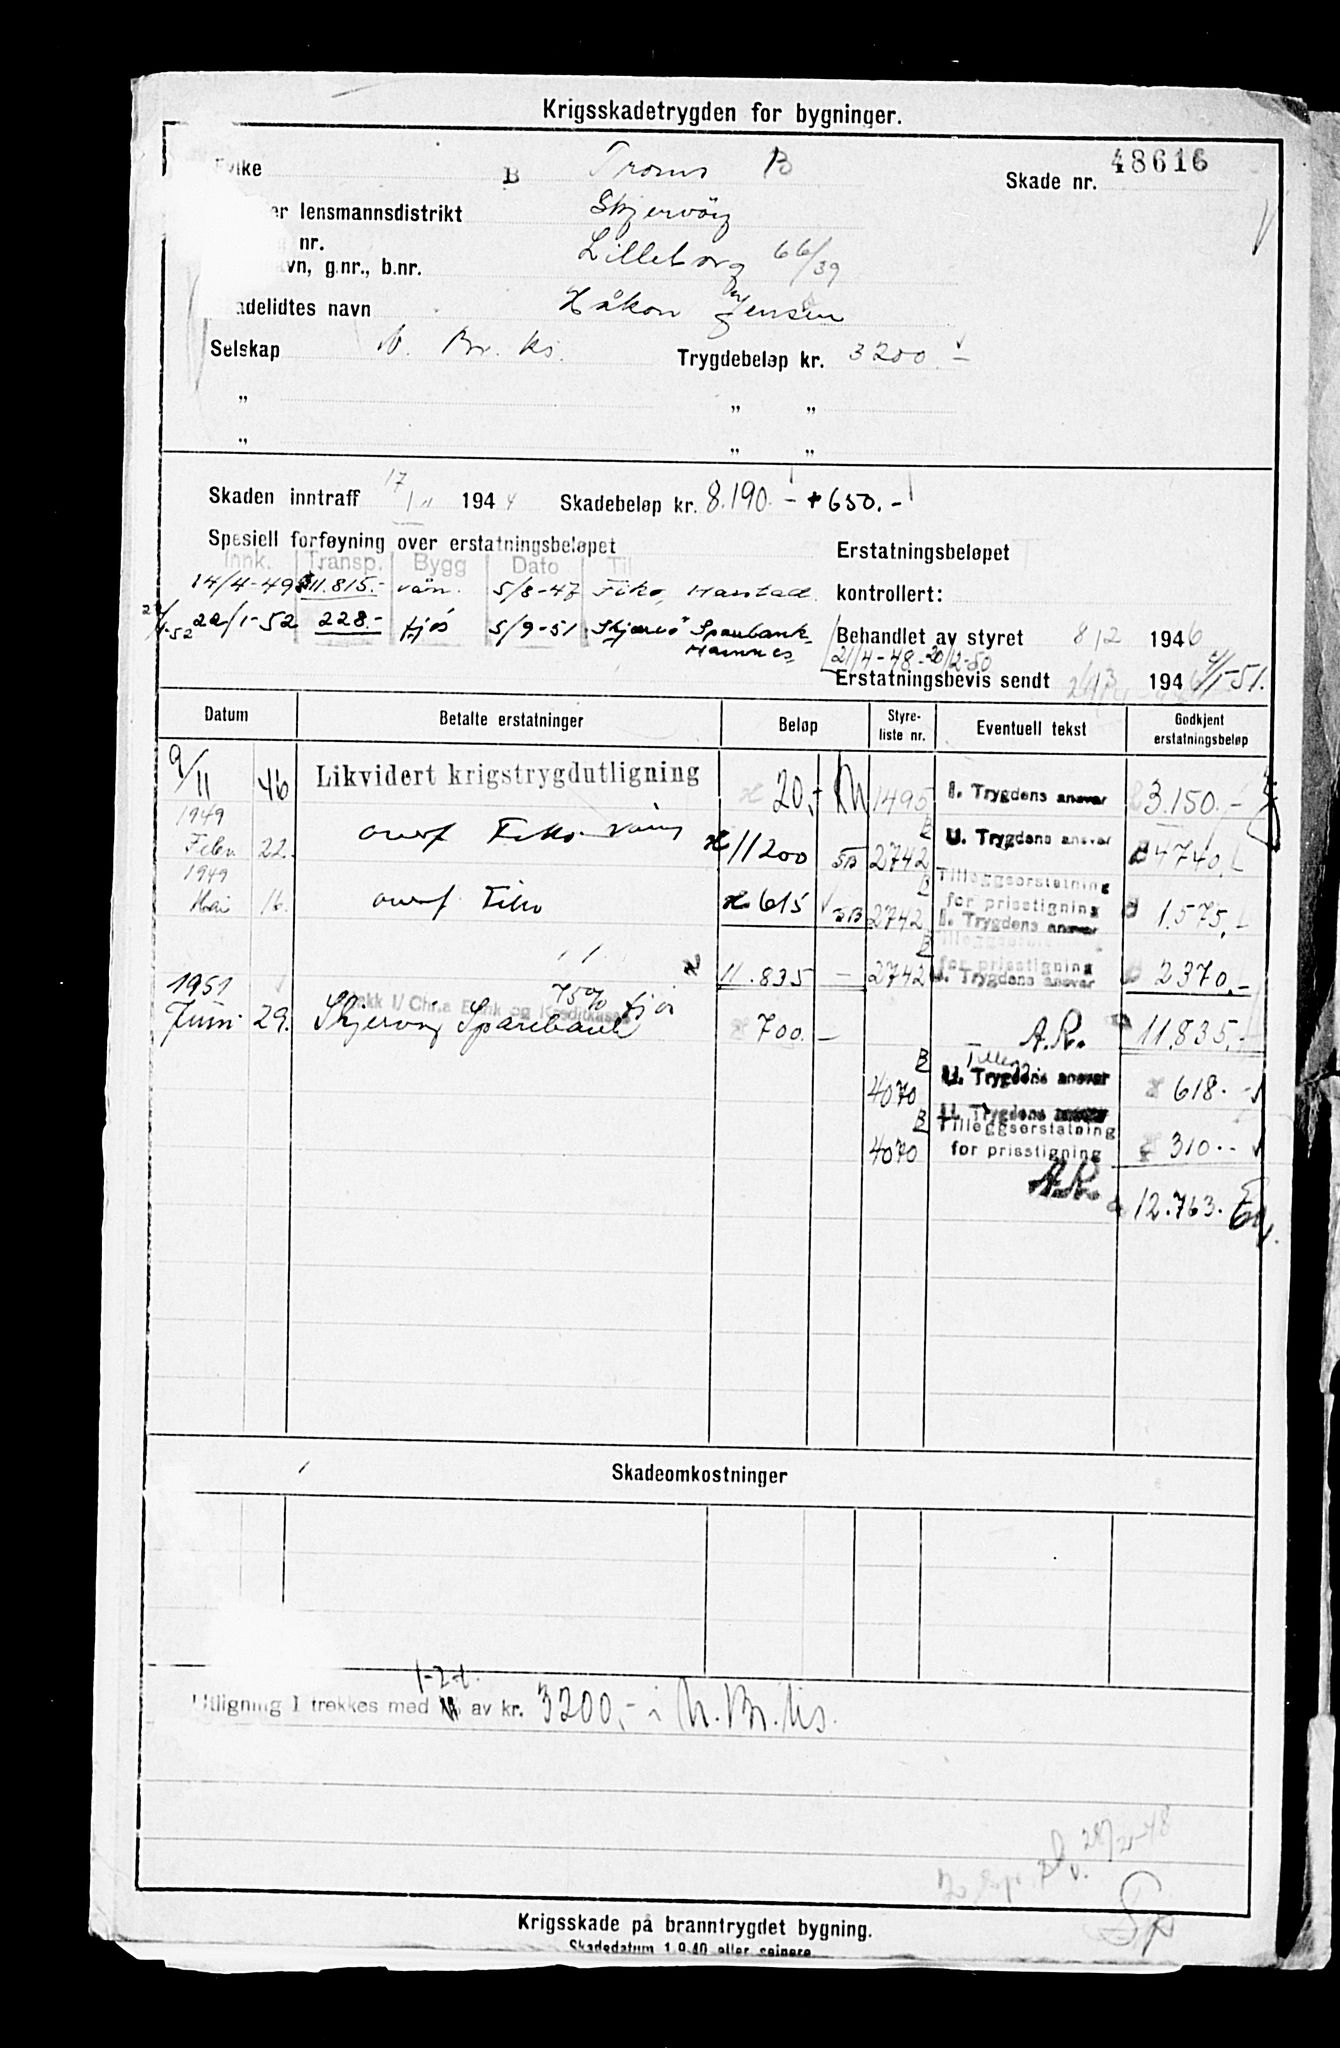 Krigsskadetrygden for bygninger.
ylke B Troms B
Skade nr. 48616
er lensmannsdistrikt Skjervöy
nr.
vn, g.nr., b.nr. Lilleborg 66/39
adelidtes navn Håkon Jensen
Selskap N. Br. ks. Trygdebeløp kr. 3200.-
" " "
" " "
Skaden inntraff 17/11 1944 Skadebeløp kr. 8.190.- + 650.-
Spesiell forføyning over erstatningsbeløpet
Innk. Transp. Bygg Dato Til
14/4-49 11.815.- vån. 5/8-47 Fiko, Harstad
22/1-52 228.- fjøs 5/9-51 Skjervö Sparebank
Hamnes
Erstatningsbeløpet
kontrollert:
Behandlet av styret 8/2 1946
21/4-48-20/12-50
Erstatningsbevis sendt 194 4/1-51.
Datum Betalte erstatninger Beløp Styre-liste nr. Eventuell tekst Godkjent erstatningsbeløp
9/11 46 Likvidert krigstrygdutligning 20.- 1495 I. Trygdens ansvar 3.150.-
1949
Febr 22. overf Fiko vån 11200 B 2742 U. Trygdens ansvar 4740.-
1949
Mai 16. overf Fiko 615 B 2742 Tilleggserstatning
for prisstigning
I. Trygdens ansvar 1.575.-
11.835 - B 2742 Tilleggserstatning
for prisstigning
U. Trygdens ansvar 2370.-
1951 75% fjøs
Juni 29. Skjervöy Sparebank 700.- A.R. 11.835.-
B 4070 Tillegg
U. Trygdens ansvar 618.-
B 4070 U. Trygdens ansvar
Tilleggserstatning
for prisstigning 310.-
A.R. 12.763.
Skadeomkostninger
1-2-t.
Utligning I trekkes med av kr. 3200,- i N. Br. ks.
28/2-48
Krigsskade på branntrygdet bygning.
Skadedatum 1.9.40 eller seinere